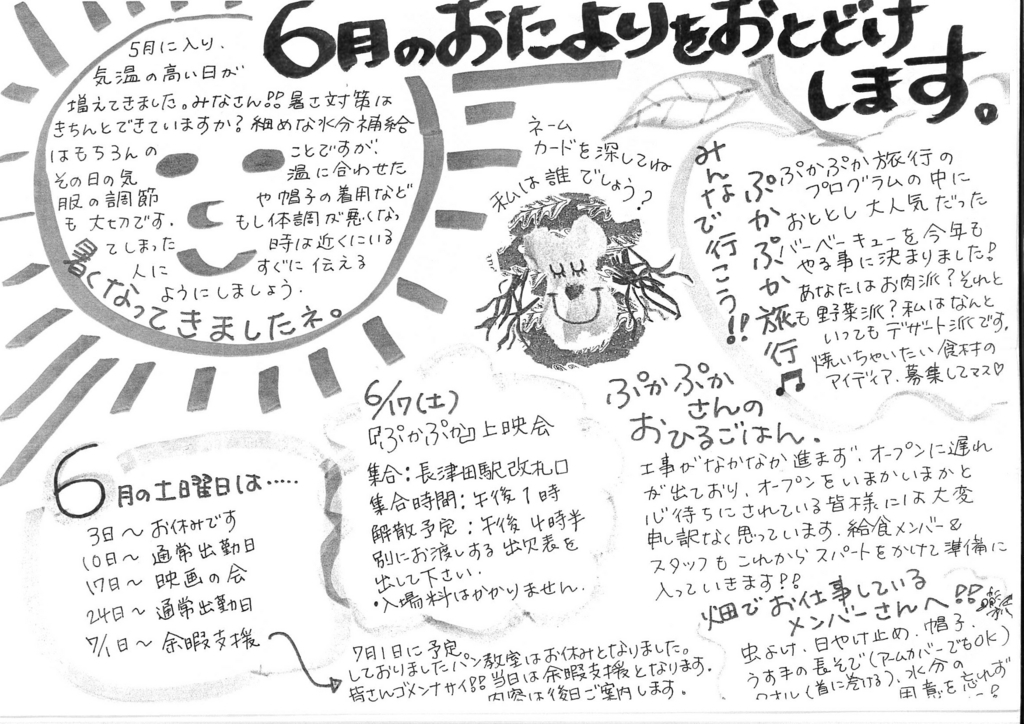 6月のおたよりをおとどけ
します。
5月に入り、
気温の高い日が
増えてきました。みなさん!!暑さ対策は
きちんとできていますか?細めな水分補給
はもちろんの ことですが、
その日の気 温に合わせた
服の調節 や帽子の着用など
も大切です。 もし体調が悪くなっ
てしまった 時は近くにいる
人に すぐに伝える
ようにしましょう。
暑くなってきましたネ。
ネーム
カードを深してね
私は誰でしょう?
みんなで行こう!!
ぷかぷか旅行♫
ぷかぷか旅行の
プログラムの中に
おととし大人気だった
バーベーキューを今年も
やる事に決まりました!
あなたはお肉派?それと
も野菜派?私はなんと
いってもデザート派です。
焼いちゃいたい食材の
アイディア、募集してマス♡
6/17(土)
『ぷかぷか』上映会
集合:長津田駅改札口
集合時間:午後1時
解散予定:午後4時半
別にお渡しする出欠表を
出して下さい.
・入場料はかかりません.
ぷかぷか
さんの
おひるごはん.
工事がなかなか進まず、オープンに遅れ
が出ており、オープンをいまかいまかと
心待ちにされている皆様には大変
申し訳なく思っています。給食メンバー&
スタッフもこれからスパートをかけて準備に
入っていきます!!
6月の土曜日は・・・・・
3日〜お休みです
10日〜通常出勤日
17日〜映画の会
24日〜通常出勤日
7/1日〜余暇支援
7月1日に予定
しておりましたパン教室はお休みとなりました。
皆さんゴメンナサイ!!当日は余暇支援となります。
内容は後日ご案内します。
畑でお仕事している
メンバーさんへ!!
虫よけ、日やけ止め、帽子、
うす手の長そで(アームカバーでもOK)
タオル(首に巻ける)、水分の
用意を忘れず